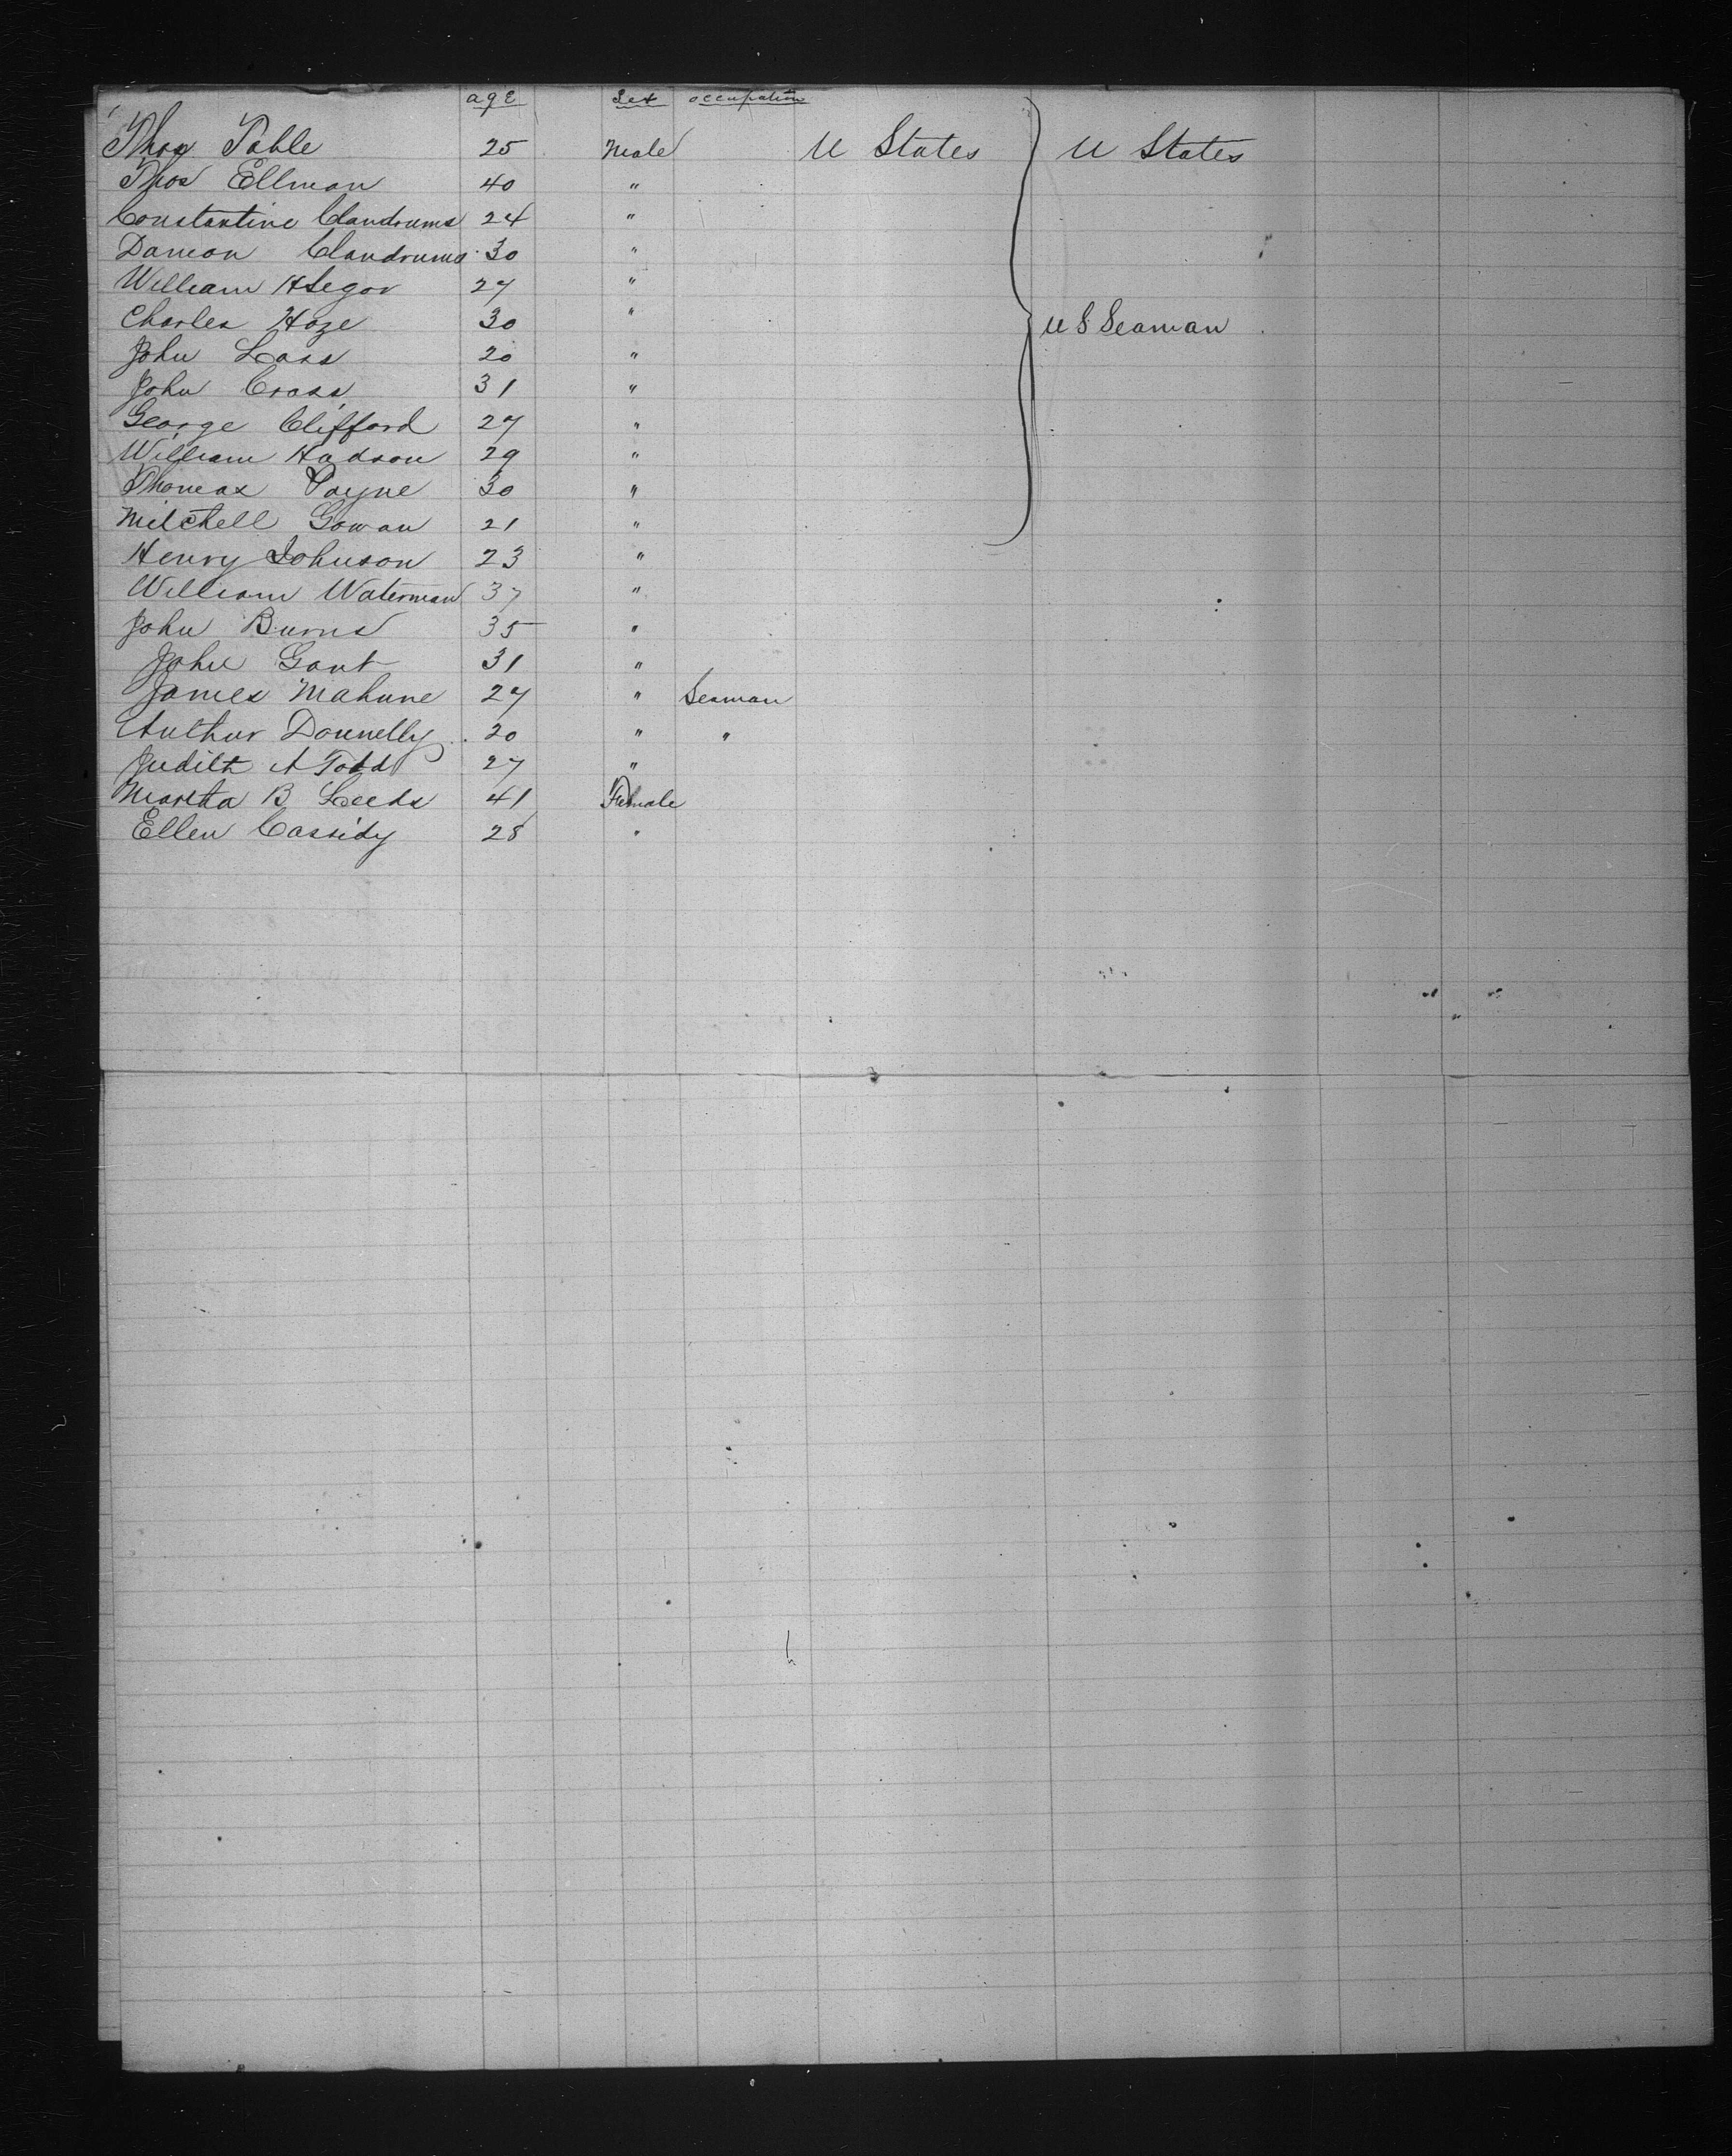 age Sex occupation
Thos Table 25 Male U States U States
Thos Ellman 40 "
Constantine Clandrums 24 "
Damon Clandrums 30 "
William H Segor 27 "
Charles Haze 30 " U S Seaman
John Lass 20 "
John Cross 31 "
George Clifford 27 "
William Hadson 29 "
Thomas Payne 30 "
Mitchell Gowan 21 "
Henry Johnson 23 "
William Waterman 37 "
John Burns 35 "
John Gant 31 "
James Mahune 27 " Seaman
Authur Donnelly 20 " "
Judith A Todd 27 "
Martha B Leeds 41 Female
Ellen Cassidy 28 "